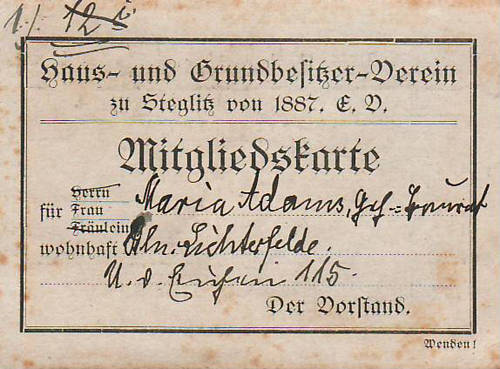 1) 12
Haus- und Grundbesitzer-Verein
zu Steglitz von 1887. E. V.
Mitgliedskarte
für Herrn Frau Fräulein Maria Adams, Geh.-Baurat
wohnhaft Bln. Lichterfelde.
U. d. Eichen 115.
Der Vorstand.
Wenden!